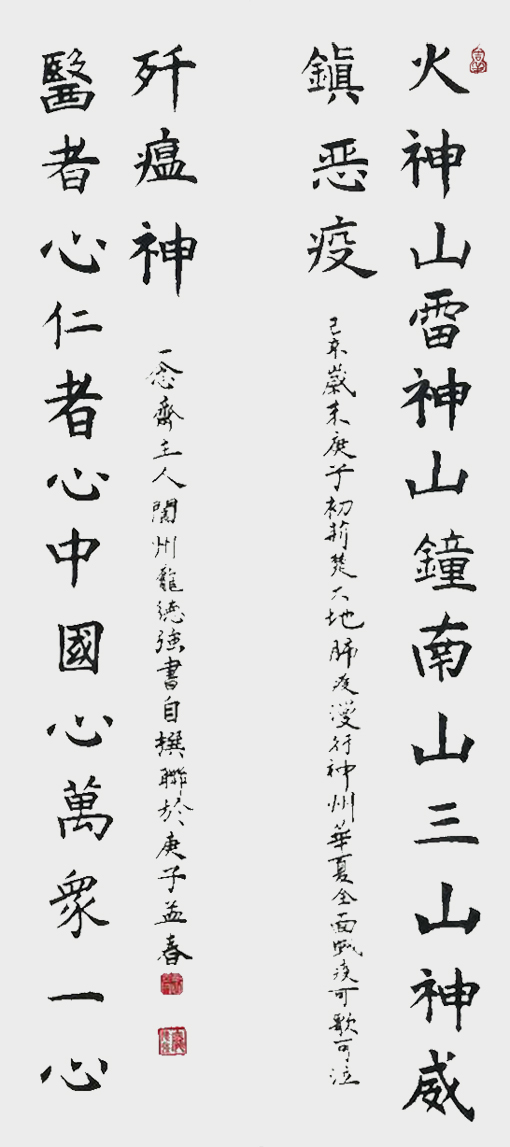 火神山雷神山鐘南山三山神威
鎮恶疫
己亥歲末庚子初荊楚大地肺疫漫行神州華夏全面战疫可歌可泣
醫者心仁者心中國心萬衆一心
歼瘟神
一念齋主人閬州龍德強書自撰聯於庚子孟春